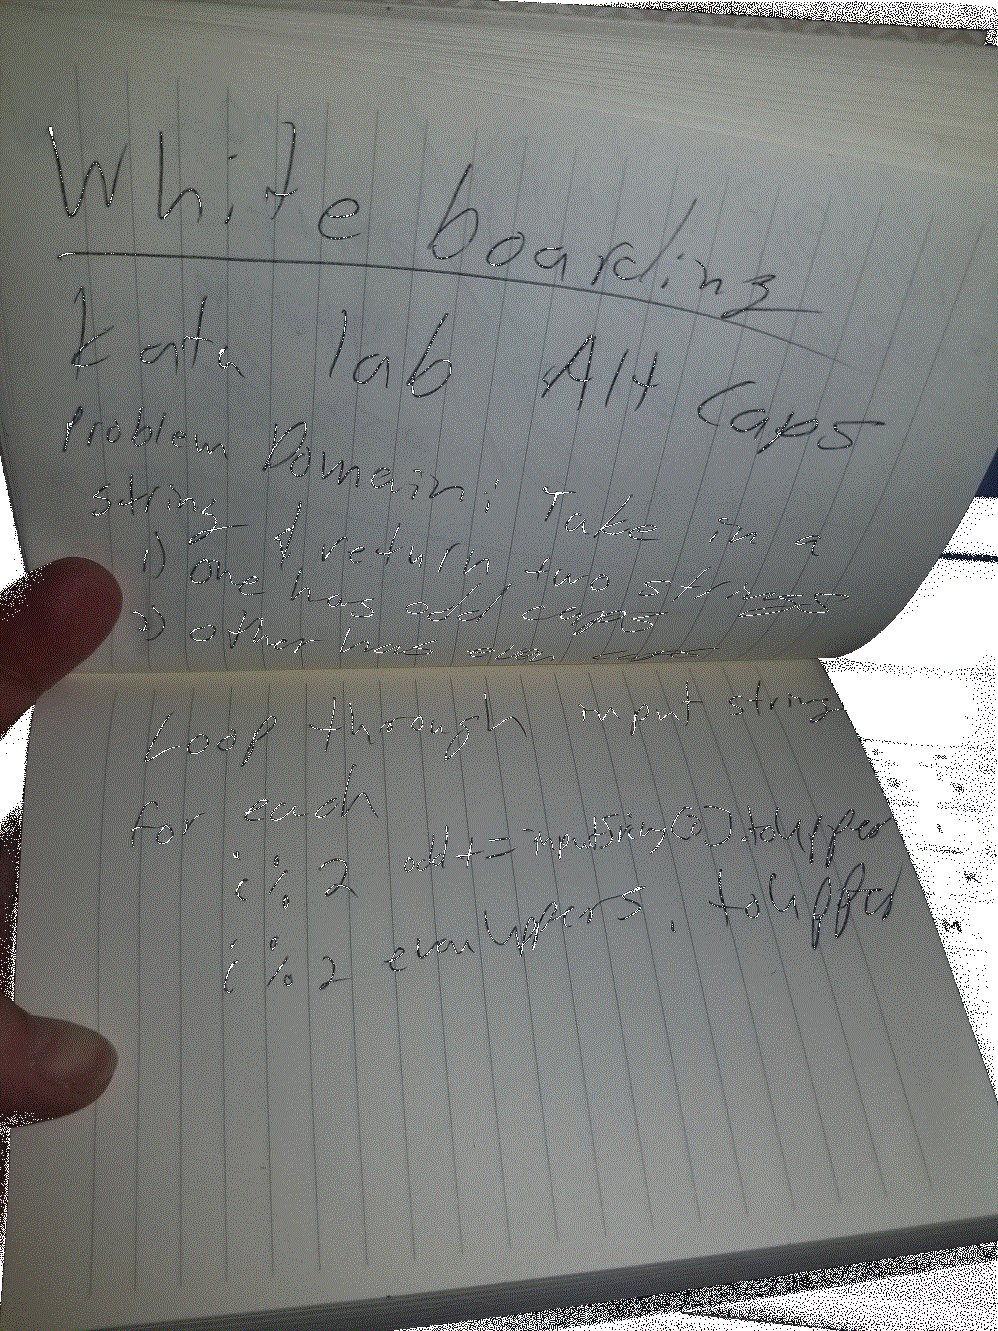 White boarding
Kata lab Alt Caps
Problem Domain: Take in a
string & return two strings
1) one has odd caps
2) other has even caps
Loop through input string
for each
i % 2 odd += inputString(i) toUpper
i % 2 evenUppers . toUpper